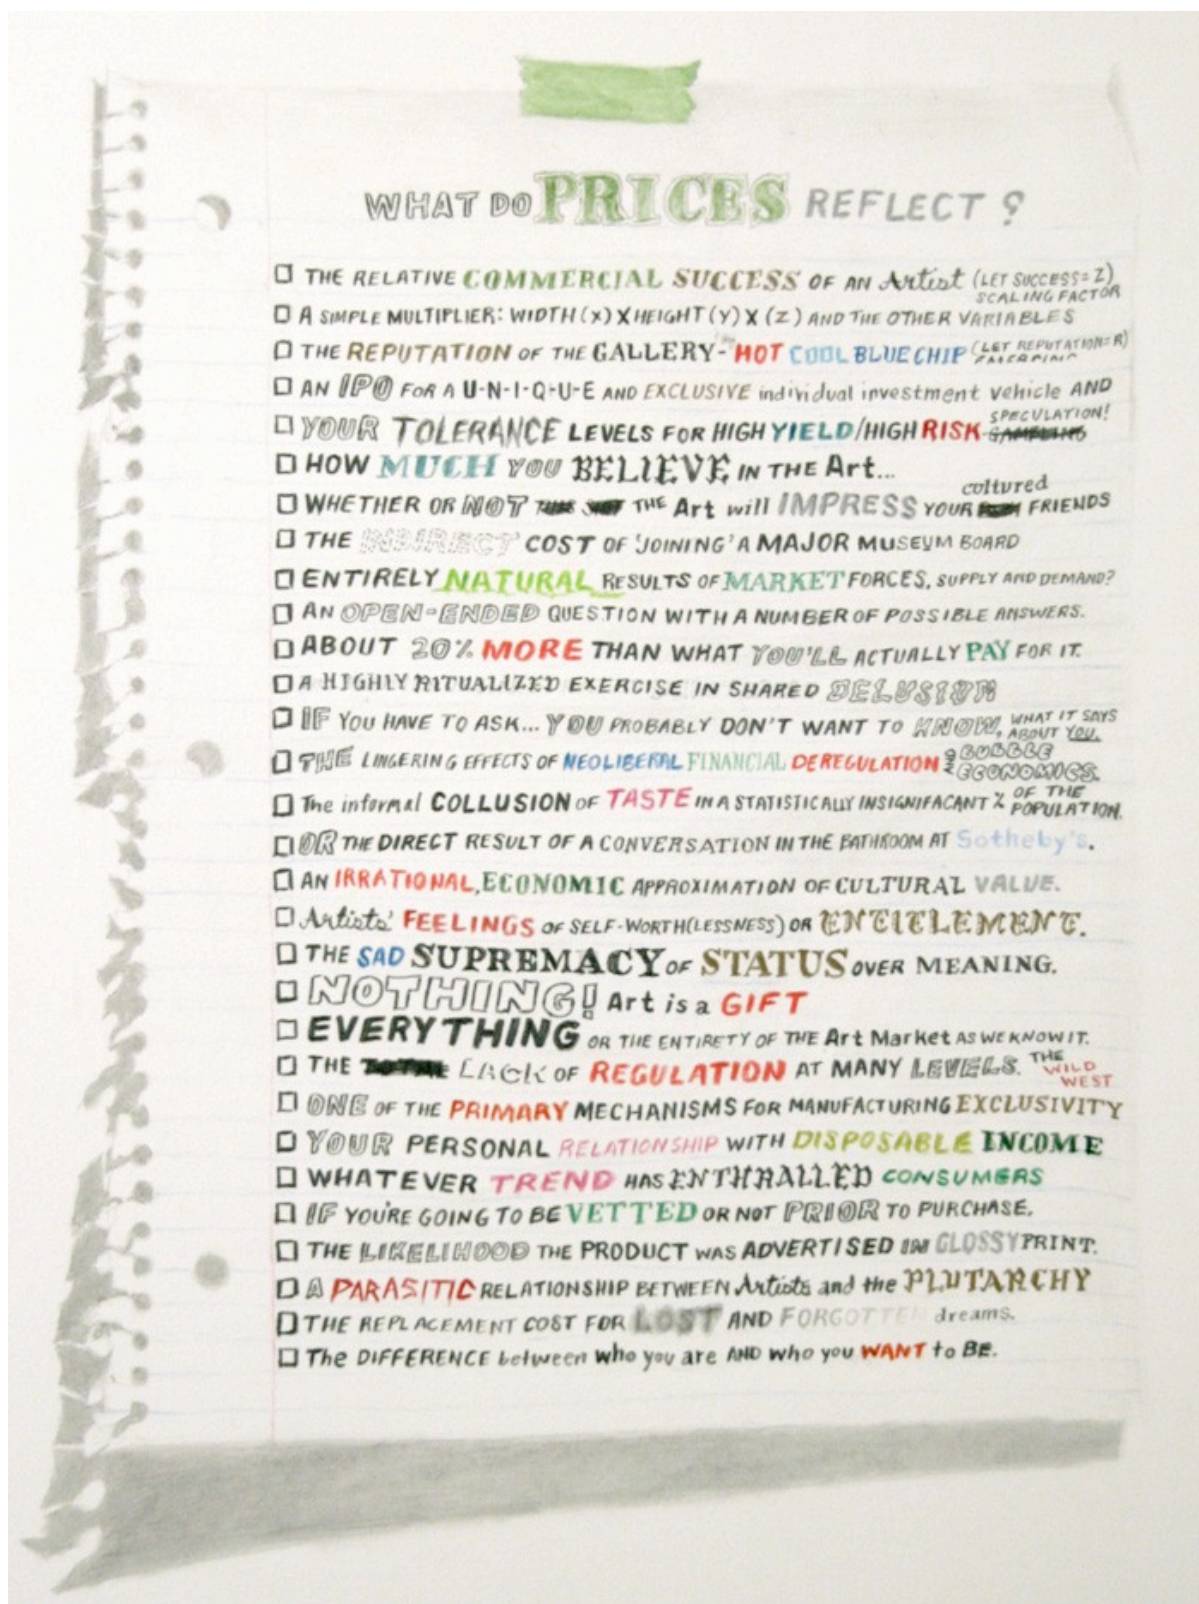 WHAT DO PRICES REFLECT?
☐ THE RELATIVE COMMERCIAL SUCCESS OF AN Artist (LET SUCCESS=Z)
SCALING FACTOR
☐ A SIMPLE MULTIPLIER: WIDTH(x) X HEIGHT(y) X (z) AND THE OTHER VARIABLES
☐ THE REPUTATION OF THE GALLERY- HOT COOL BLUE CHIP (LET REPUTATION=R)
☐ AN IPO FOR A U-N-I-Q-U-E AND EXCLUSIVE individual investment vehicle AND
SPECULATION!
☐ YOUR TOLERANCE LEVELS FOR HIGH YIELD/HIGH RISK GAMBLING
☐ HOW MUCH YOU BELIEVE IN THE Art...
cultured
☐ WHETHER OR NOT THE Art will IMPRESS YOUR FRIENDS
☐ THE INDIRECT COST OF 'JOINING' A MAJOR MUSEUM BOARD
☐ ENTIRELY NATURAL RESULTS OF MARKET FORCES, SUPPLY AND DEMAND?
☐ AN OPEN-ENDED QUESTION WITH A NUMBER OF POSSIBLE ANSWERS.
☐ ABOUT 20% MORE THAN WHAT YOU'LL ACTUALLY PAY FOR IT.
☐ A HIGHLY RITUALIZED EXERCISE IN SHARED DELUSION
☐ IF YOU HAVE TO ASK... YOU PROBABLY DON'T WANT TO KNOW, WHAT IT SAYS
ABOUT YOU.
☐ THE LINGERING EFFECTS OF NEOLIBERAL FINANCIAL DEREGULATION AND BUBBLE
ECONOMICS.
☐ The informal COLLUSION OF TASTE IN A STATISTICALLY INSIGNIFACANT % OF THE
POPULATION.
☐ OR THE DIRECT RESULT OF A CONVERSATION IN THE BATHROOM AT Sotheby's.
☐ AN IRRATIONAL, ECONOMIC APPROXIMATION OF CULTURAL VALUE.
☐ Artists' FEELINGS OF SELF-WORTH(LESSNESS) OR ENTITLEMENT.
☐ THE SAD SUPREMACY OF STATUS OVER MEANING.
☐ NOTHING! Art is a GIFT
☐ EVERYTHING OR THE ENTIRETY OF THE Art Market AS WE KNOW IT.
☐ THE TOTAL LACK OF REGULATION AT MANY LEVELS. THE
WILD
WEST
☐ ONE OF THE PRIMARY MECHANISMS FOR MANUFACTURING EXCLUSIVITY
☐ YOUR PERSONAL RELATIONSHIP WITH DISPOSABLE INCOME
☐ WHATEVER TREND HAS ENTHRALLED CONSUMERS
☐ IF YOU'RE GOING TO BE VETTED OR NOT PRIOR TO PURCHASE.
☐ THE LIKELIHOOD THE PRODUCT WAS ADVERTISED IN GLOSSY PRINT.
☐ A PARASITIC RELATIONSHIP BETWEEN Artists and the PLUTARCHY
☐ THE REPLACEMENT COST FOR LOST AND FORGOTTEN dreams.
☐ The DIFFERENCE between who you are AND who you WANT to BE.